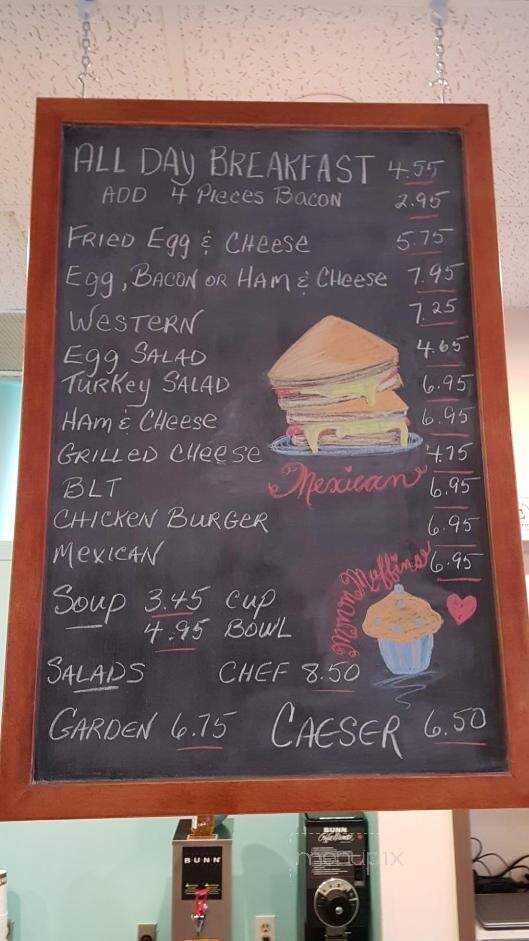 ALL DAY BREAKFAST 4.55
ADD 4 Pieces Bacon 2.95
FRIED Egg & CHeese 5.75
Egg, BACON OR HAM & CHeese 7.95
WESTERN 7.25
Egg SALAD 4.65
TURKey SALAD 6.95
HAM & CHeese 6.95
GRILLED CHeese 4.75
BLT 6.95
CHICKEN BURGER 6.95
MEXICAN 6.95
Mexican
Soup 3.45 cup
4.95 BOWL
Muffins
SALADS CHEF 8.50
GARDEN 6.75 CAESER 6.50
BUNN
BUNN
menupix